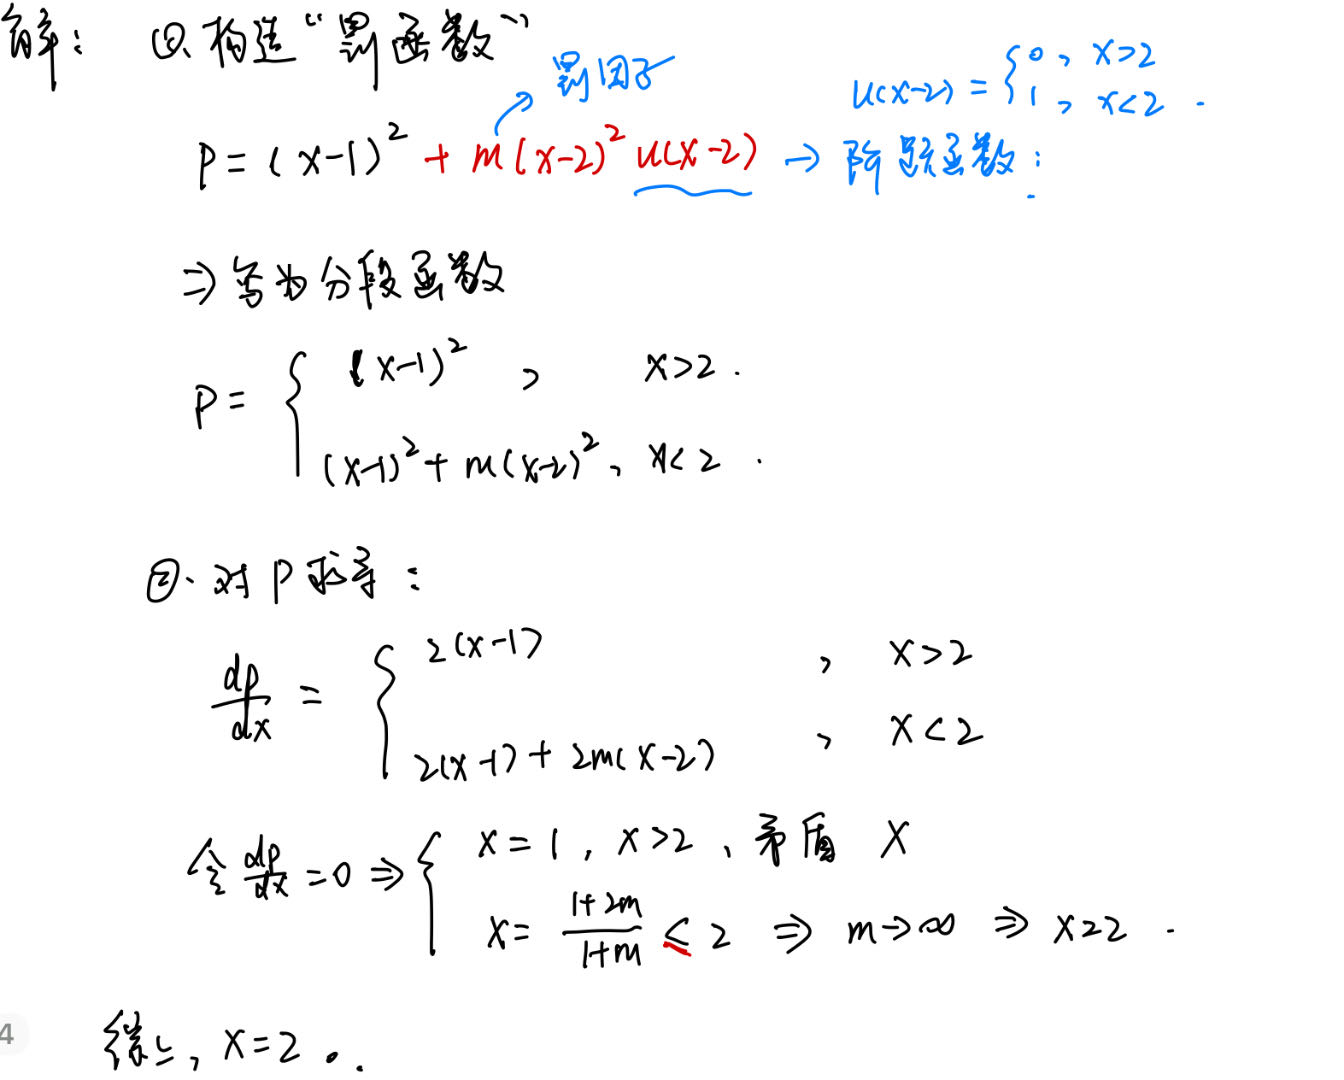 解: ①、构造“罚函数”
罚因子
u(x-2) = { 0, x>2
1, x<2 .
P = (x-1)² + m(x-2)² u(x-2) → 阶跃函数:
⇒ 写为分段函数
P = { (x-1)², x>2 .
(x-1)² + m(x-2)², x<2 .
②、对P求导:
dp/dx = { 2(x-1) , x>2
2(x-1) + 2m(x-2) , x<2
令 dp/dx = 0 ⇒ { x=1, x>2、矛盾 X
x = (1+2m)/(1+m) ≤ 2 ⇒ m→∞ ⇒ x=2 .
4
综上, x=2 .